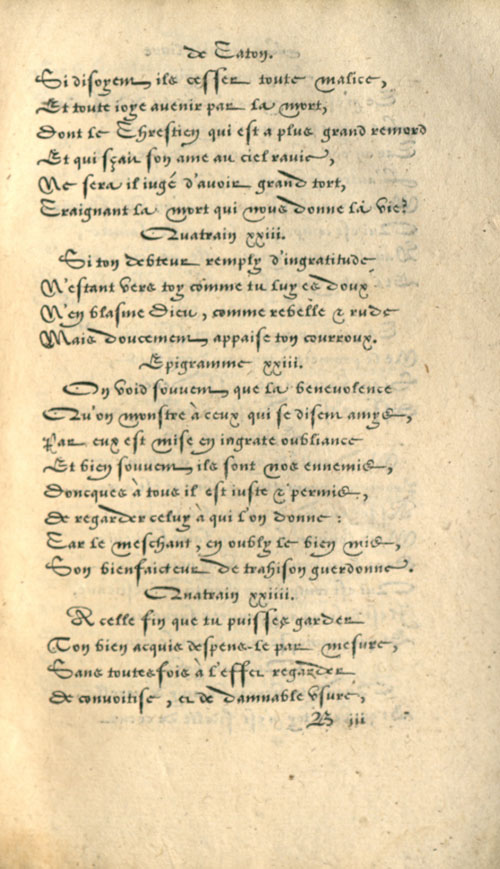 de Caton.
Si disoyent ils cesser toute malice,
Et toute ioye avenir par la mort,
Dont le Chrestien qui est a plus grand remord
Et qui sçait son ame au ciel ravie,
Ne sera il iugé d'avoir grand tort,
Craignant la mort qui nous donne la vie?
Quatrain xxiii.
Si ton debteur remply d'ingratitude
N'estant vers toy comme tu luy es doux
N'en blasme Dieu, comme rebelle & rude
Mais doucement appaise ton courroux.
Epigramme xxiii.
On void souvent que la benevolence
Qu'on monstre à ceux qui se disent amys,
Par eux est mise en ingrate oubliance
Et bien souvent ils sont nos ennemis,
Doncques à tous il est iuste & permis,
de regarder celuy à qui l'on donne :
Car le meschant, en oubly le bien mis,
Son bienfaicteur de trahison guerdonne.
Quatrain xxiiii.
A celle fin que tu puisses garder
Ton bien acquis despens-le par mesure,
Sans toutesfois à l'effect regarder
de convoitise, et de damnable vsure,
B iii